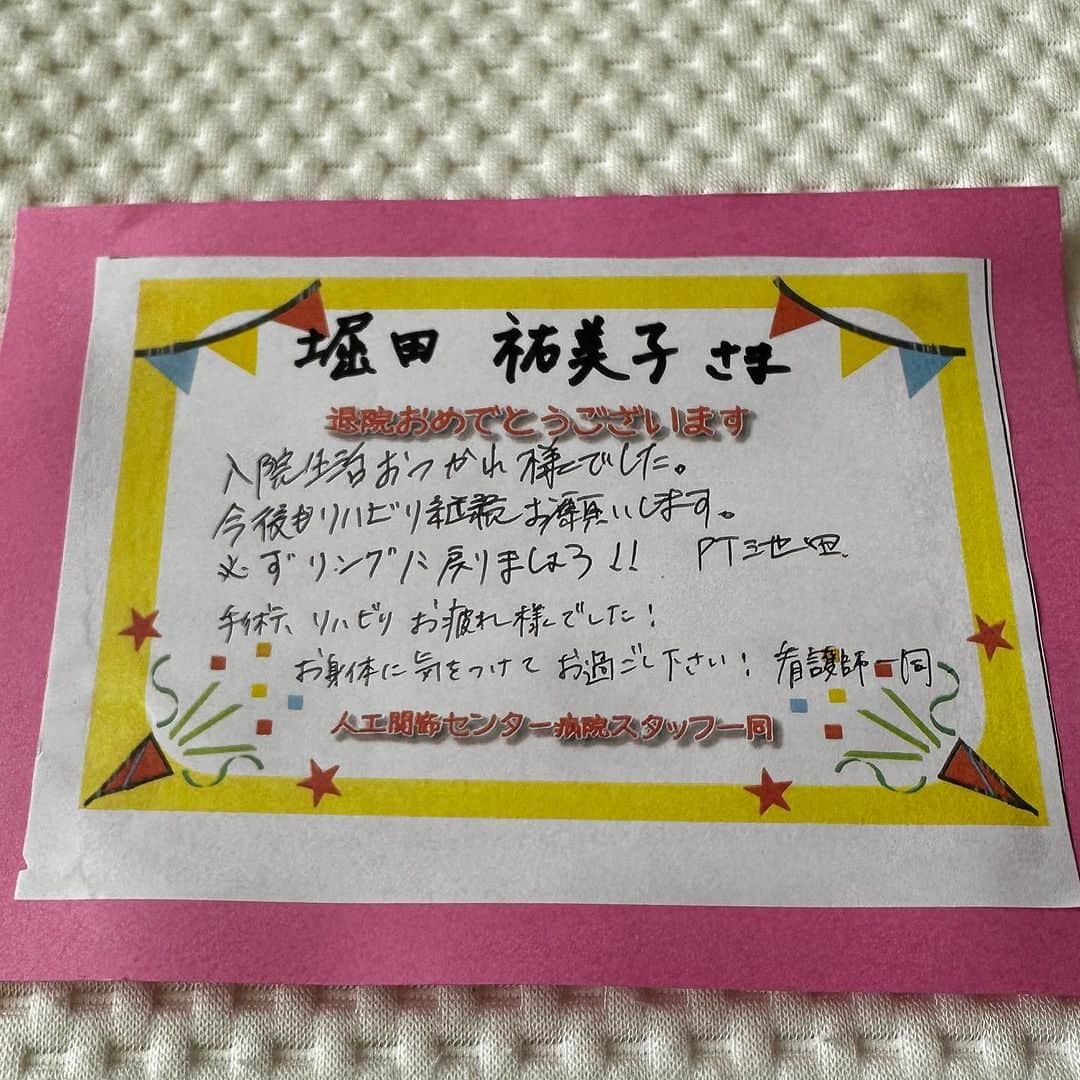 堀田 祐美子 さま
退院おめでとうございます
入院生活おつかれ様でした。
今後もリハビリ継続お願いします。
必ずリングに戻りましょう!! PT池田
手術、リハビリ お疲れ様でした!
お身体に気をつけて お過ごし下さい! 看護師一同
人工関節センター病院スタッフ一同